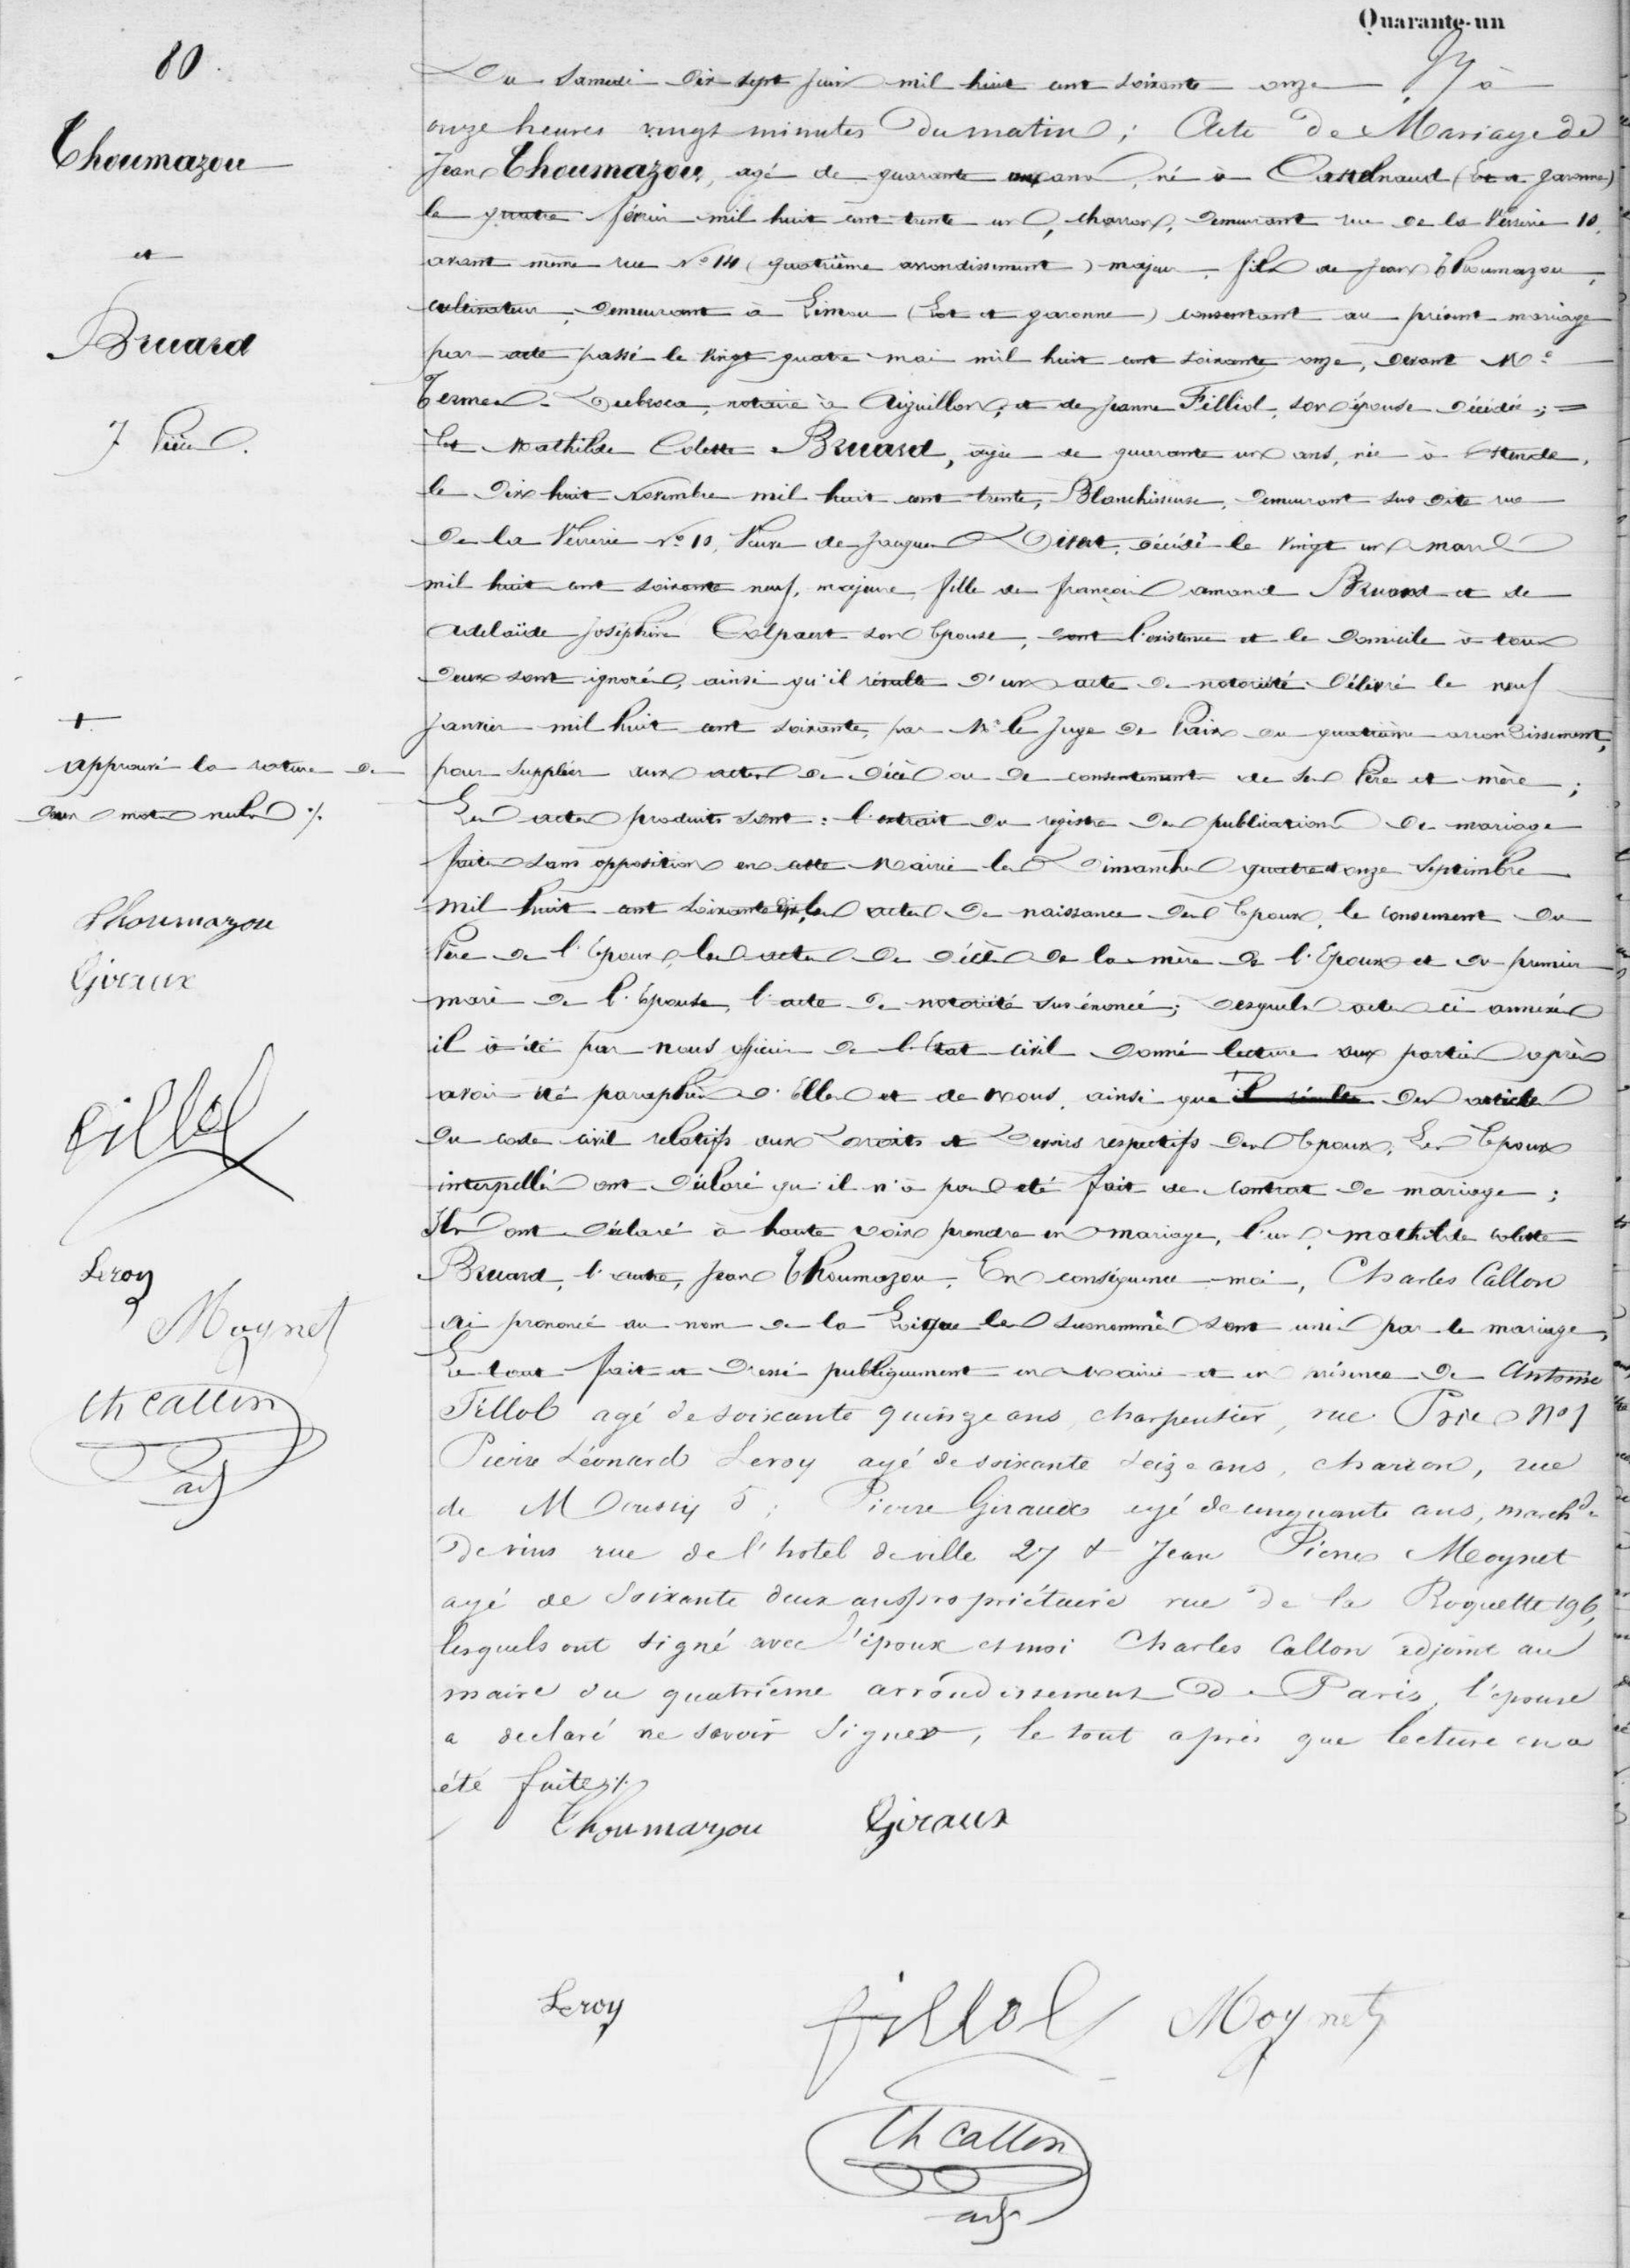 Quarante-un
80
Thoumazou
et
Bruard
7 Pièces.
Du Samedi Dix sept juin mil huit cent soixante onze à
onze heures vingt minutes du matin; Acte de Mariage de
Jean Thoumazou, agé de quarante ans, né à Castelnaud (Lot et garonne)
le quatre février mil huit cent trente un, charron, demeurant rue de la Verrerie 10,
avant même rue No 14 (quatrième arrondissement) majeur, fils de Jean Thoumazou,
cultivateur, demeurant à (Lot et garonne) consentant au présent mariage
par acte passé le vingt quatre mai mil huit cent soixante onze, devant Me
notaire à Aiguillon; et de Jeanne Filliol, son épouse décédée; =
Et Mathilde Colette Bruard, agée de quarante un ans, née à Ostende,
le dix huit Novembre mil huit cent trente, Blanchisseuse, demeurant sus dite rue
de la Verrerie No 10, Veuve de Jacques décédé le vingt un mars
mil huit cent soixante neuf, majeure, fille de françois amand Bruard et de
Adelaïde Joséphine Colpaert son Epouse, dont l'existence et le domicile à tous
deux sont ignorés, ainsi qu'il résulte d'un acte de notoriété délivré le neuf
Janvier mil huit cent soixante, par Mr le Juge de Paix du quatrième arrondissement,
pour suppléer aux actes de décès ou de consentement de ses Père et mère;
Les actes produits sont: l'extrait du registre des publications de mariage
faites sans opposition en cette Mairie les Dimanches quatre et onze Septembre
mil huit cent soixante dix, les actes de naissance des Epoux, le consement du
Père de l'Epoux, les actes de décès de la mère de l'Epoux et du premier
mari de l'Epouse, l'acte de notoriété sus énoncé; desquels actes ci annexés
il à été par nous officier de l'Etat civil donné lecture aux parties après
avoir été paraphés d'Elles et de nous, ainsi que + il résulte des articles
du code civil relatifs aux Droits et Devoirs respectifs des Epoux, Les Epoux
interpellés ont déclaré qu'il n'à pas été fait de contrat de mariage;
Ils ont déclaré à haute voix prendre en mariage, l'un, mathilde colette
Bruard, l'autre, Jean Thoumazou, En conséquence moi, Charles Callon
ai prononcé au nom de la Loi que les susnommés sont unis par le mariage,
Le tout fait et dressé publiquement en Mairie et en présence de Antoine
Fillol agé de soixante quinze ans, charpentier, rue No 1
Pierre Léonard Leroy agé de soixante seize ans, charron, rue
de Moussy 5; Pierre Giraux agé de cinquante ans, marchd
de vins rue de l'hotel de ville 27 & Jean Pierre Moynet
agé de soixante deux ans propriétaire rue de la Roquette 196,
lesquels ont signé avec l'époux et moi Charles Callon adjoint au
maire du quatrième arrondissement de Paris, l'épouse
a declaré ne savoir signer, le tout après que lecture en a
été faite ./.
Thoumazou Giraux
Leroy fillol Moynet
Ch Callon
adj
+
approuvé la rature de
deux mots nuls ./.
Thoumazou
Giraux
fillol
Leroy
Moynet
Ch Callon
adj